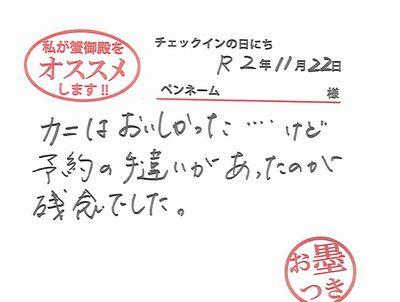 私が蟹御殿を
オススメ
します!!
チェックインの日にち
R2年11月22日
ペンネーム 様
カニはおいしかった‥‥けど
予約の手違いがあったのが
残念でした。
お墨
つき